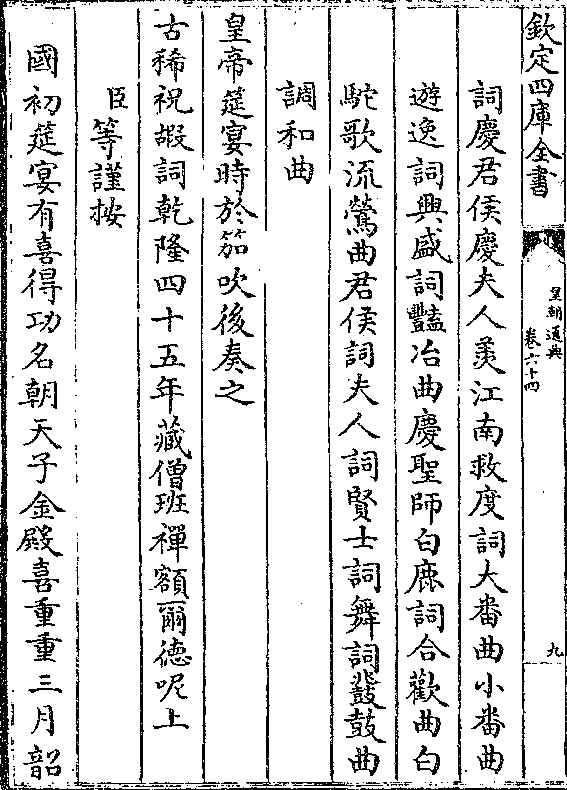 欽定四庫全書
皇朝通典
卷六十四
九
詞慶君侯慶夫人羨江南救度詞大番曲小番曲
遊逸詞興盛詞豔冶曲慶聖師白鹿詞合歡曲白
駝歌流鶯曲君侯詞夫人詞賢士詞舞詞鼗鼓曲
調和曲
皇帝筵宴時於笳吹後奏之
古稀祝嘏詞乾隆四十五年藏僧班禪額爾德呢上
臣等謹按
國初筵宴有喜得功名朝天子金殿喜重重三月韶